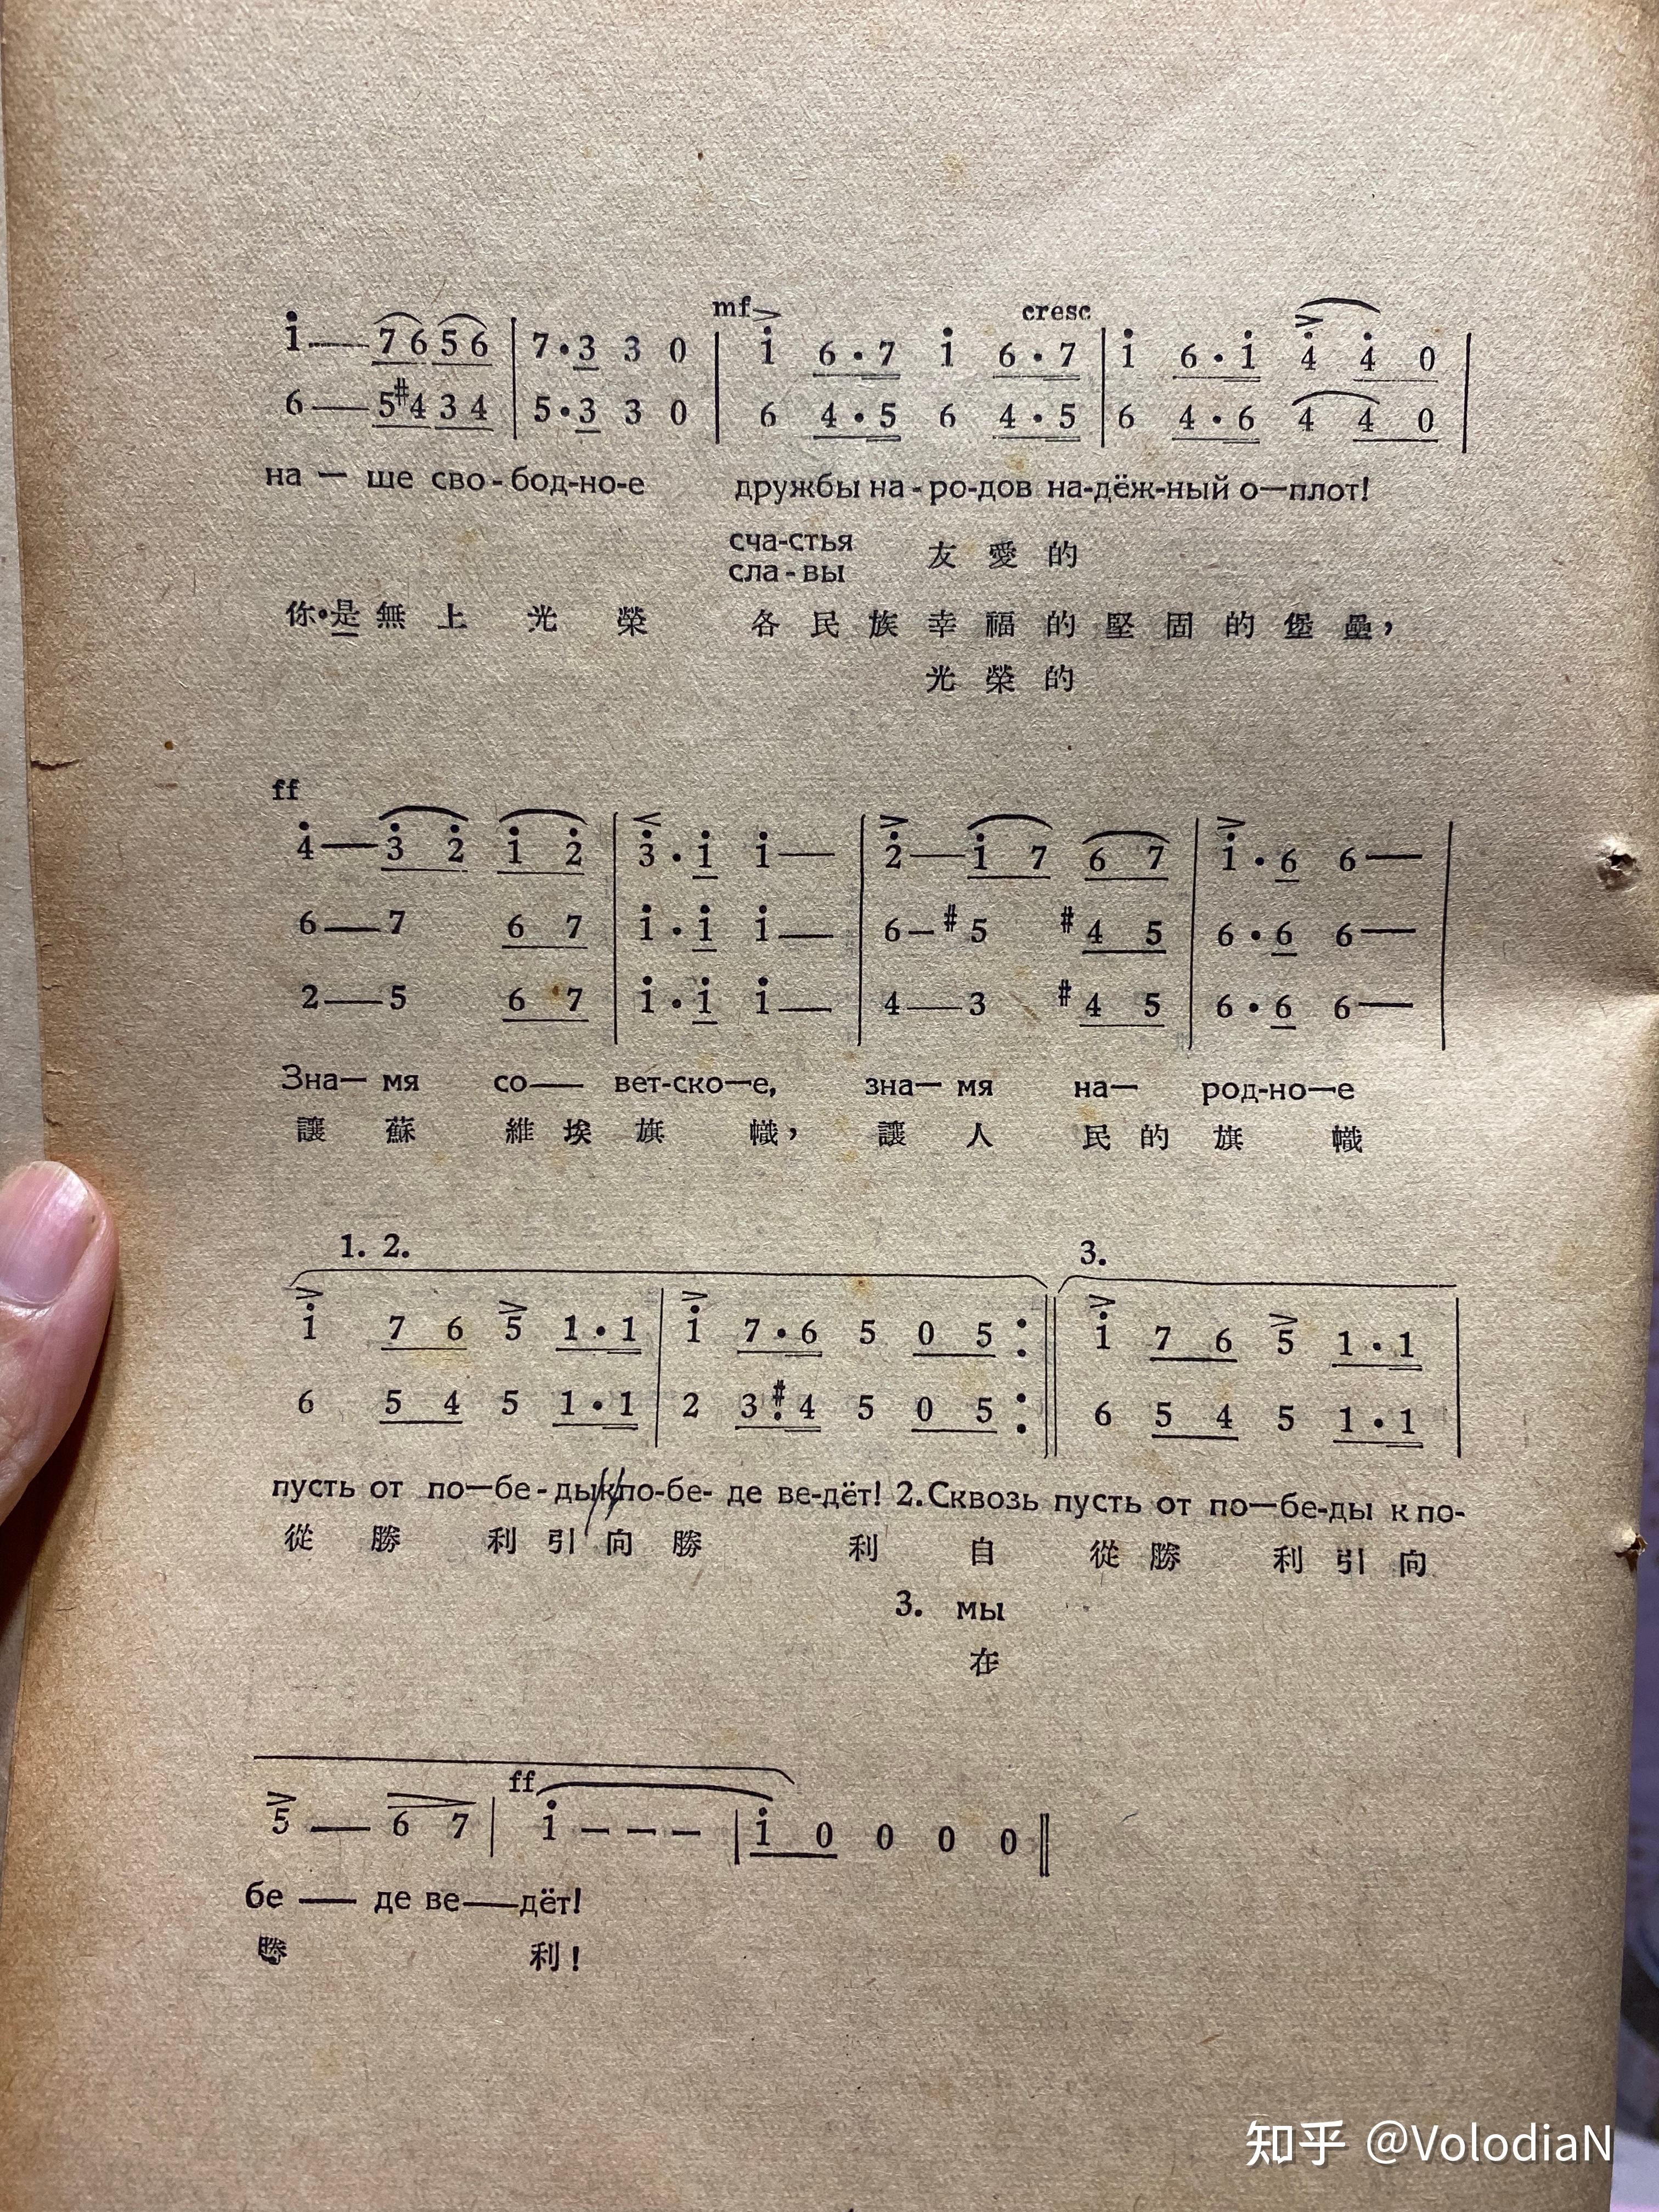 mf cresc
i — 7 6 5 6 | 7 • 3 3 0 | i 6 • 7 i 6 • 7 | i 6 • i 4 4 0 |
6 — 5 #4 3 4 | 5 • 3 3 0 | 6 4 • 5 6 4 • 5 | 6 4 • 6 4 4 0 |
на — ше сво-бод-но-е дружбы на-ро-дов на-дёж-ный о—плот!
сча-стья 友 愛 的
сла-вы
你•是 無 上 光 榮 各 民 族 幸 福 的 堅 固 的 堡 壘，
光 榮 的
ff
4 — 3 2 i 2 | 3 • i i — | 2 — i 7 6 7 | i • 6 6 — |
6 — 7 6 7 | i • i i — | 6 — #5 #4 5 | 6 • 6 6 — |
2 — 5 6 7 | i • i i — | 4 — 3 #4 5 | 6 • 6 6 — |
Зна— мя со— вет-ско—е, зна— мя на— род-но—е
讓 蘇 維 埃 旗 幟， 讓 人 民 的 旗 幟
1. 2. 3.
i 7 6 5 1 • 1 | i 7 • 6 5 0 5 :|| i 7 6 5 1 • 1 |
6 5 4 5 1 • 1 | 2 3 • #4 5 0 5 :|| 6 5 4 5 1 • 1 |
пусть от по—бе-ды к по-бе- де ве-дёт! 2. Сквозь пусть от по—бе-ды к по-
從 勝 利 引 向 勝 利 自 從 勝 利 引 向
3. мы
在
ff
5 — 6 7 | i — — — | i 0 0 0 0 ||
бе — де ве—дёт!
勝 利！
知乎 @VolodiaN